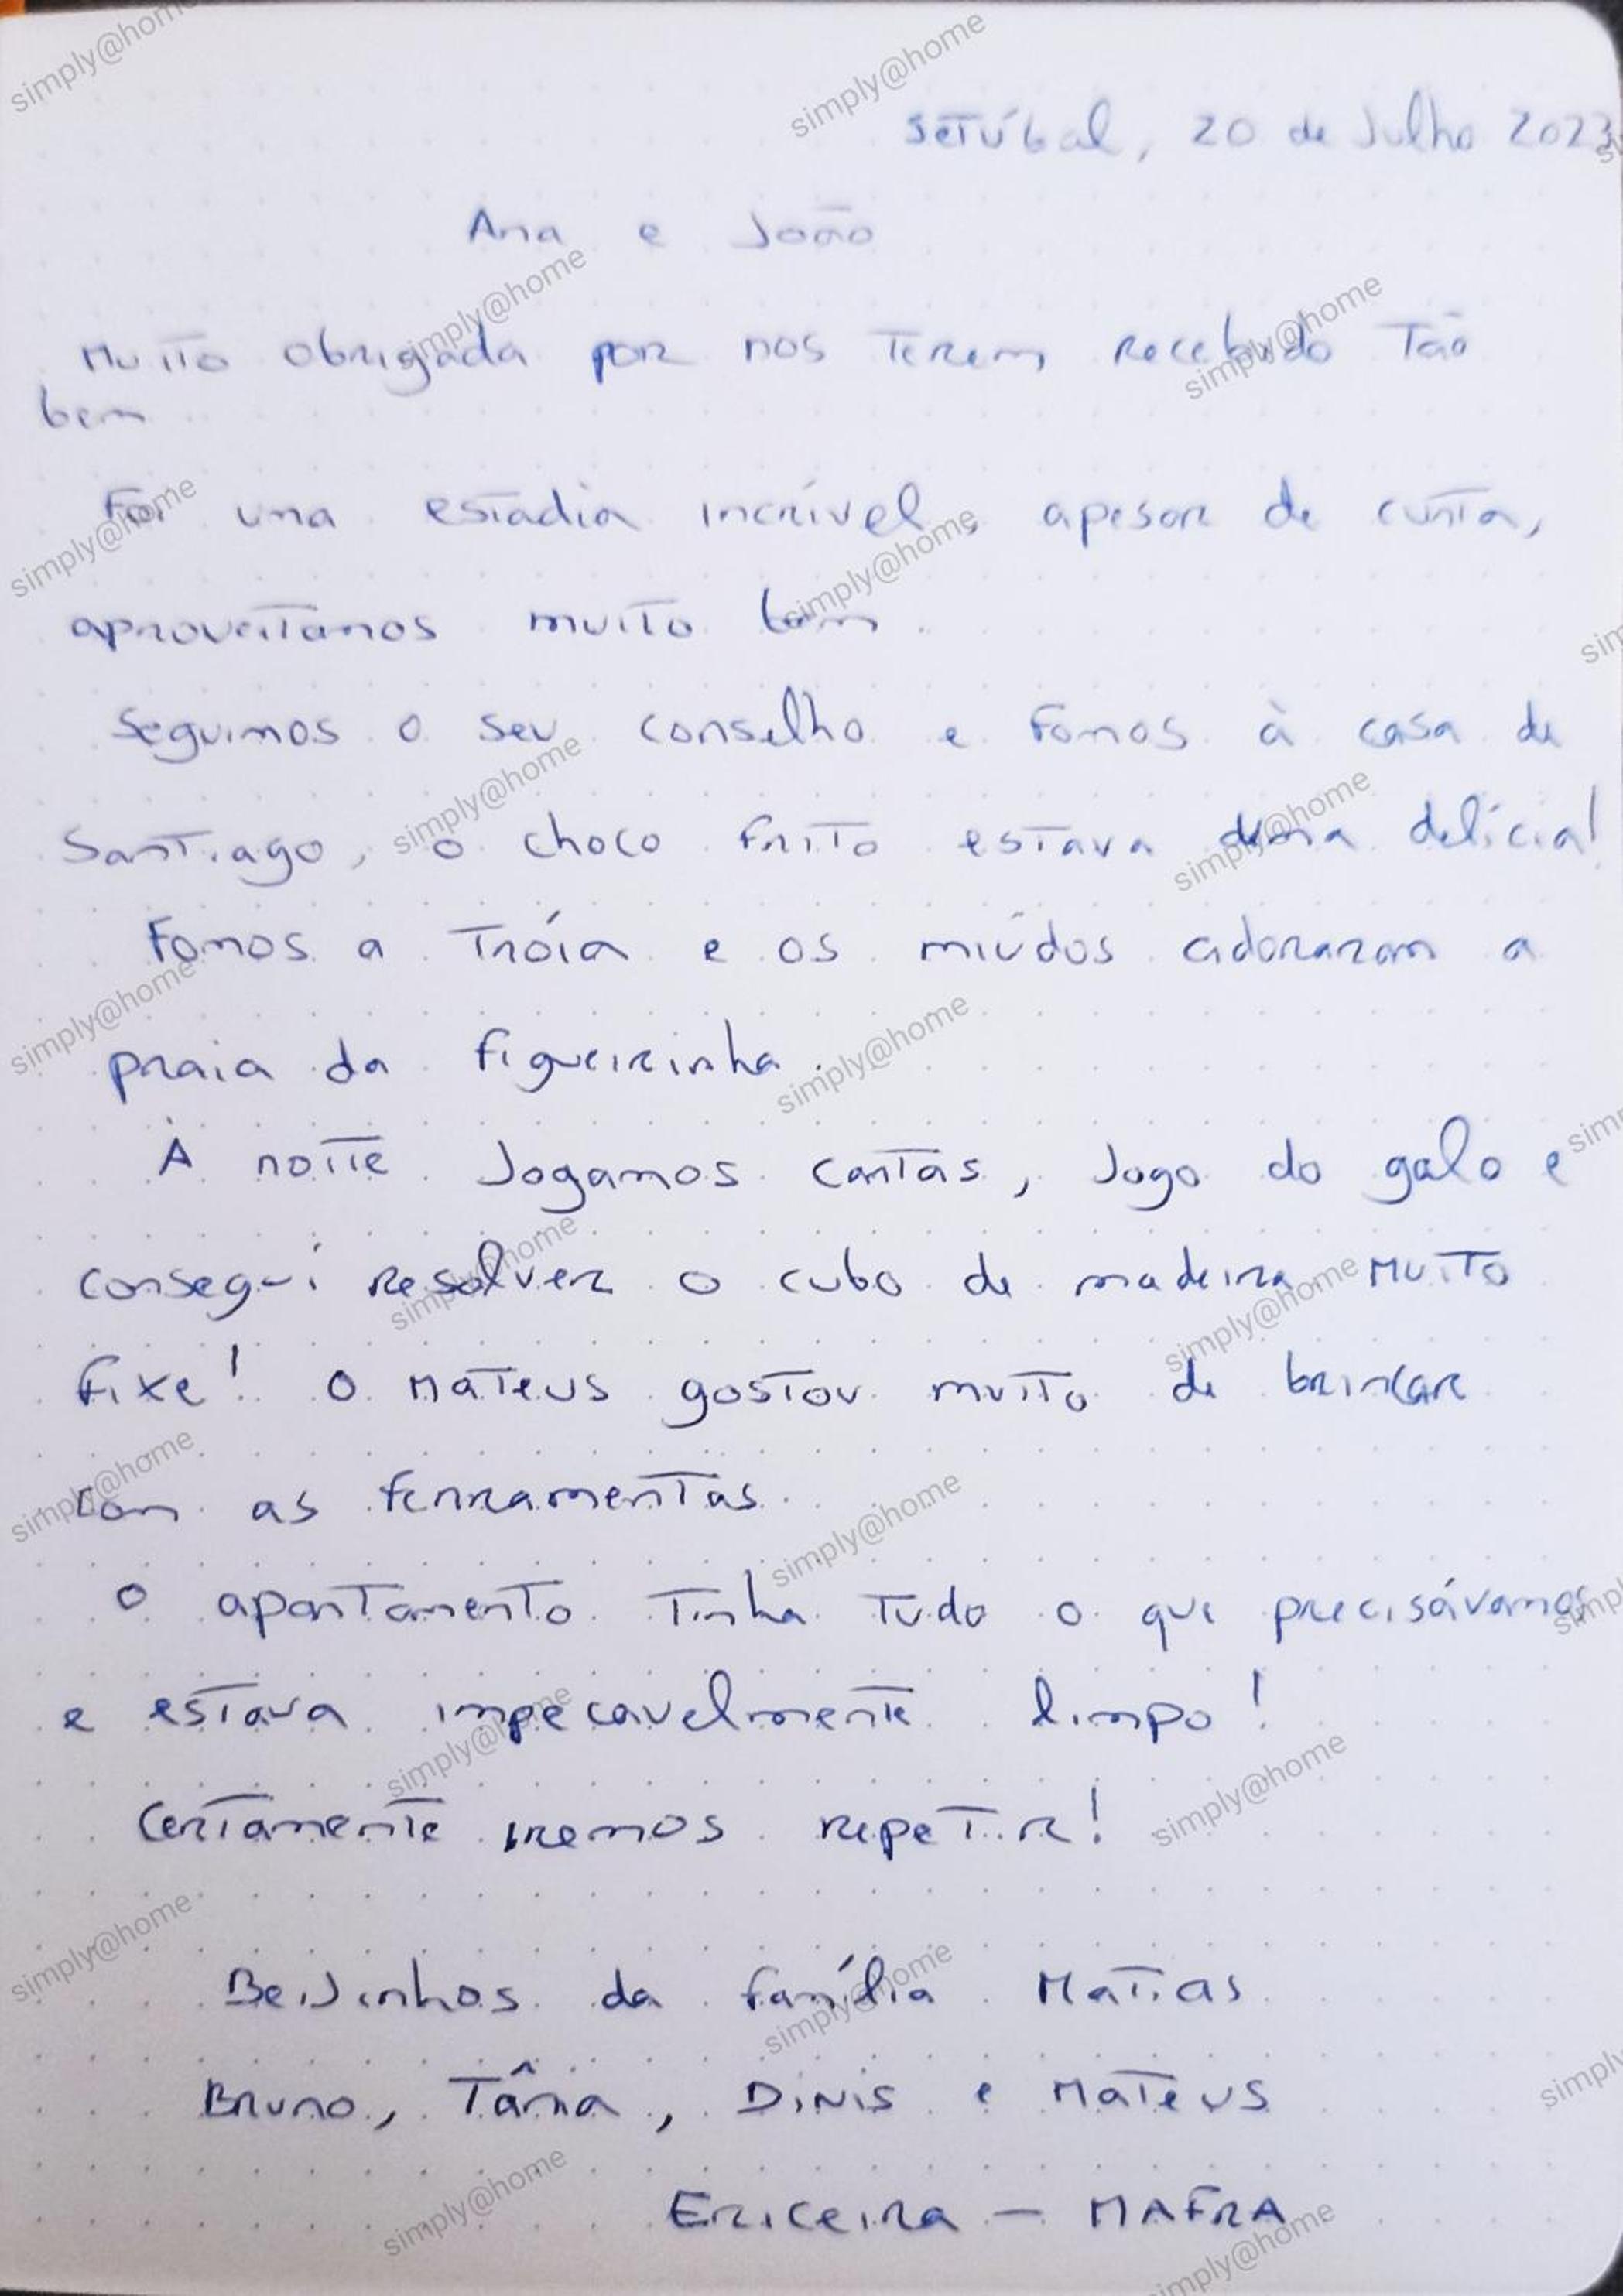 Setúbal, 20 de Julho 2023
Ana e João
Muito obrigada por nos terem recebido tão
bem
Foi uma estadia incrível, apesar de curta,
aproveitamos muito bem.
Seguimos o seu conselho e fomos à casa de
Santiago, o choco frito estava uma delícia!
Fomos a Tróia e os miúdos adoraram a
praia da figueirinha.
À noite jogamos cartas, jogo do galo e
consegui resolver o cubo de madeira. Muito
fixe! O Mateus gostou muito de brincar
com as ferramentas.
O apartamento tinha tudo o que precisávamos
e estava impecavelmente limpo!
Certamente iremos repetir!
Beijinhos da família Matias
Bruno, Tânia, Dinis e Mateus
Ericeira - MAFRA
simply@home